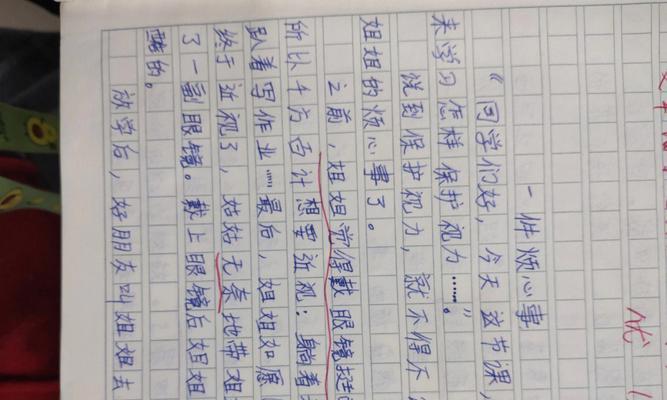 优
一件烦心事
“同学们好，今天这节课，
来学习怎样保护视力……”。
说到保护视力，就不得不
姐姐的烦心事了。
之前，姐姐觉得戴眼镜挺
所以千方百计想要近视：躺着
趴着写作业……最后，姐姐如愿
终于近视了，姑姑无奈地带姐
了一副眼镜。戴上眼镜后姐姐
酷的。
放学后，好朋友叫姐姐去